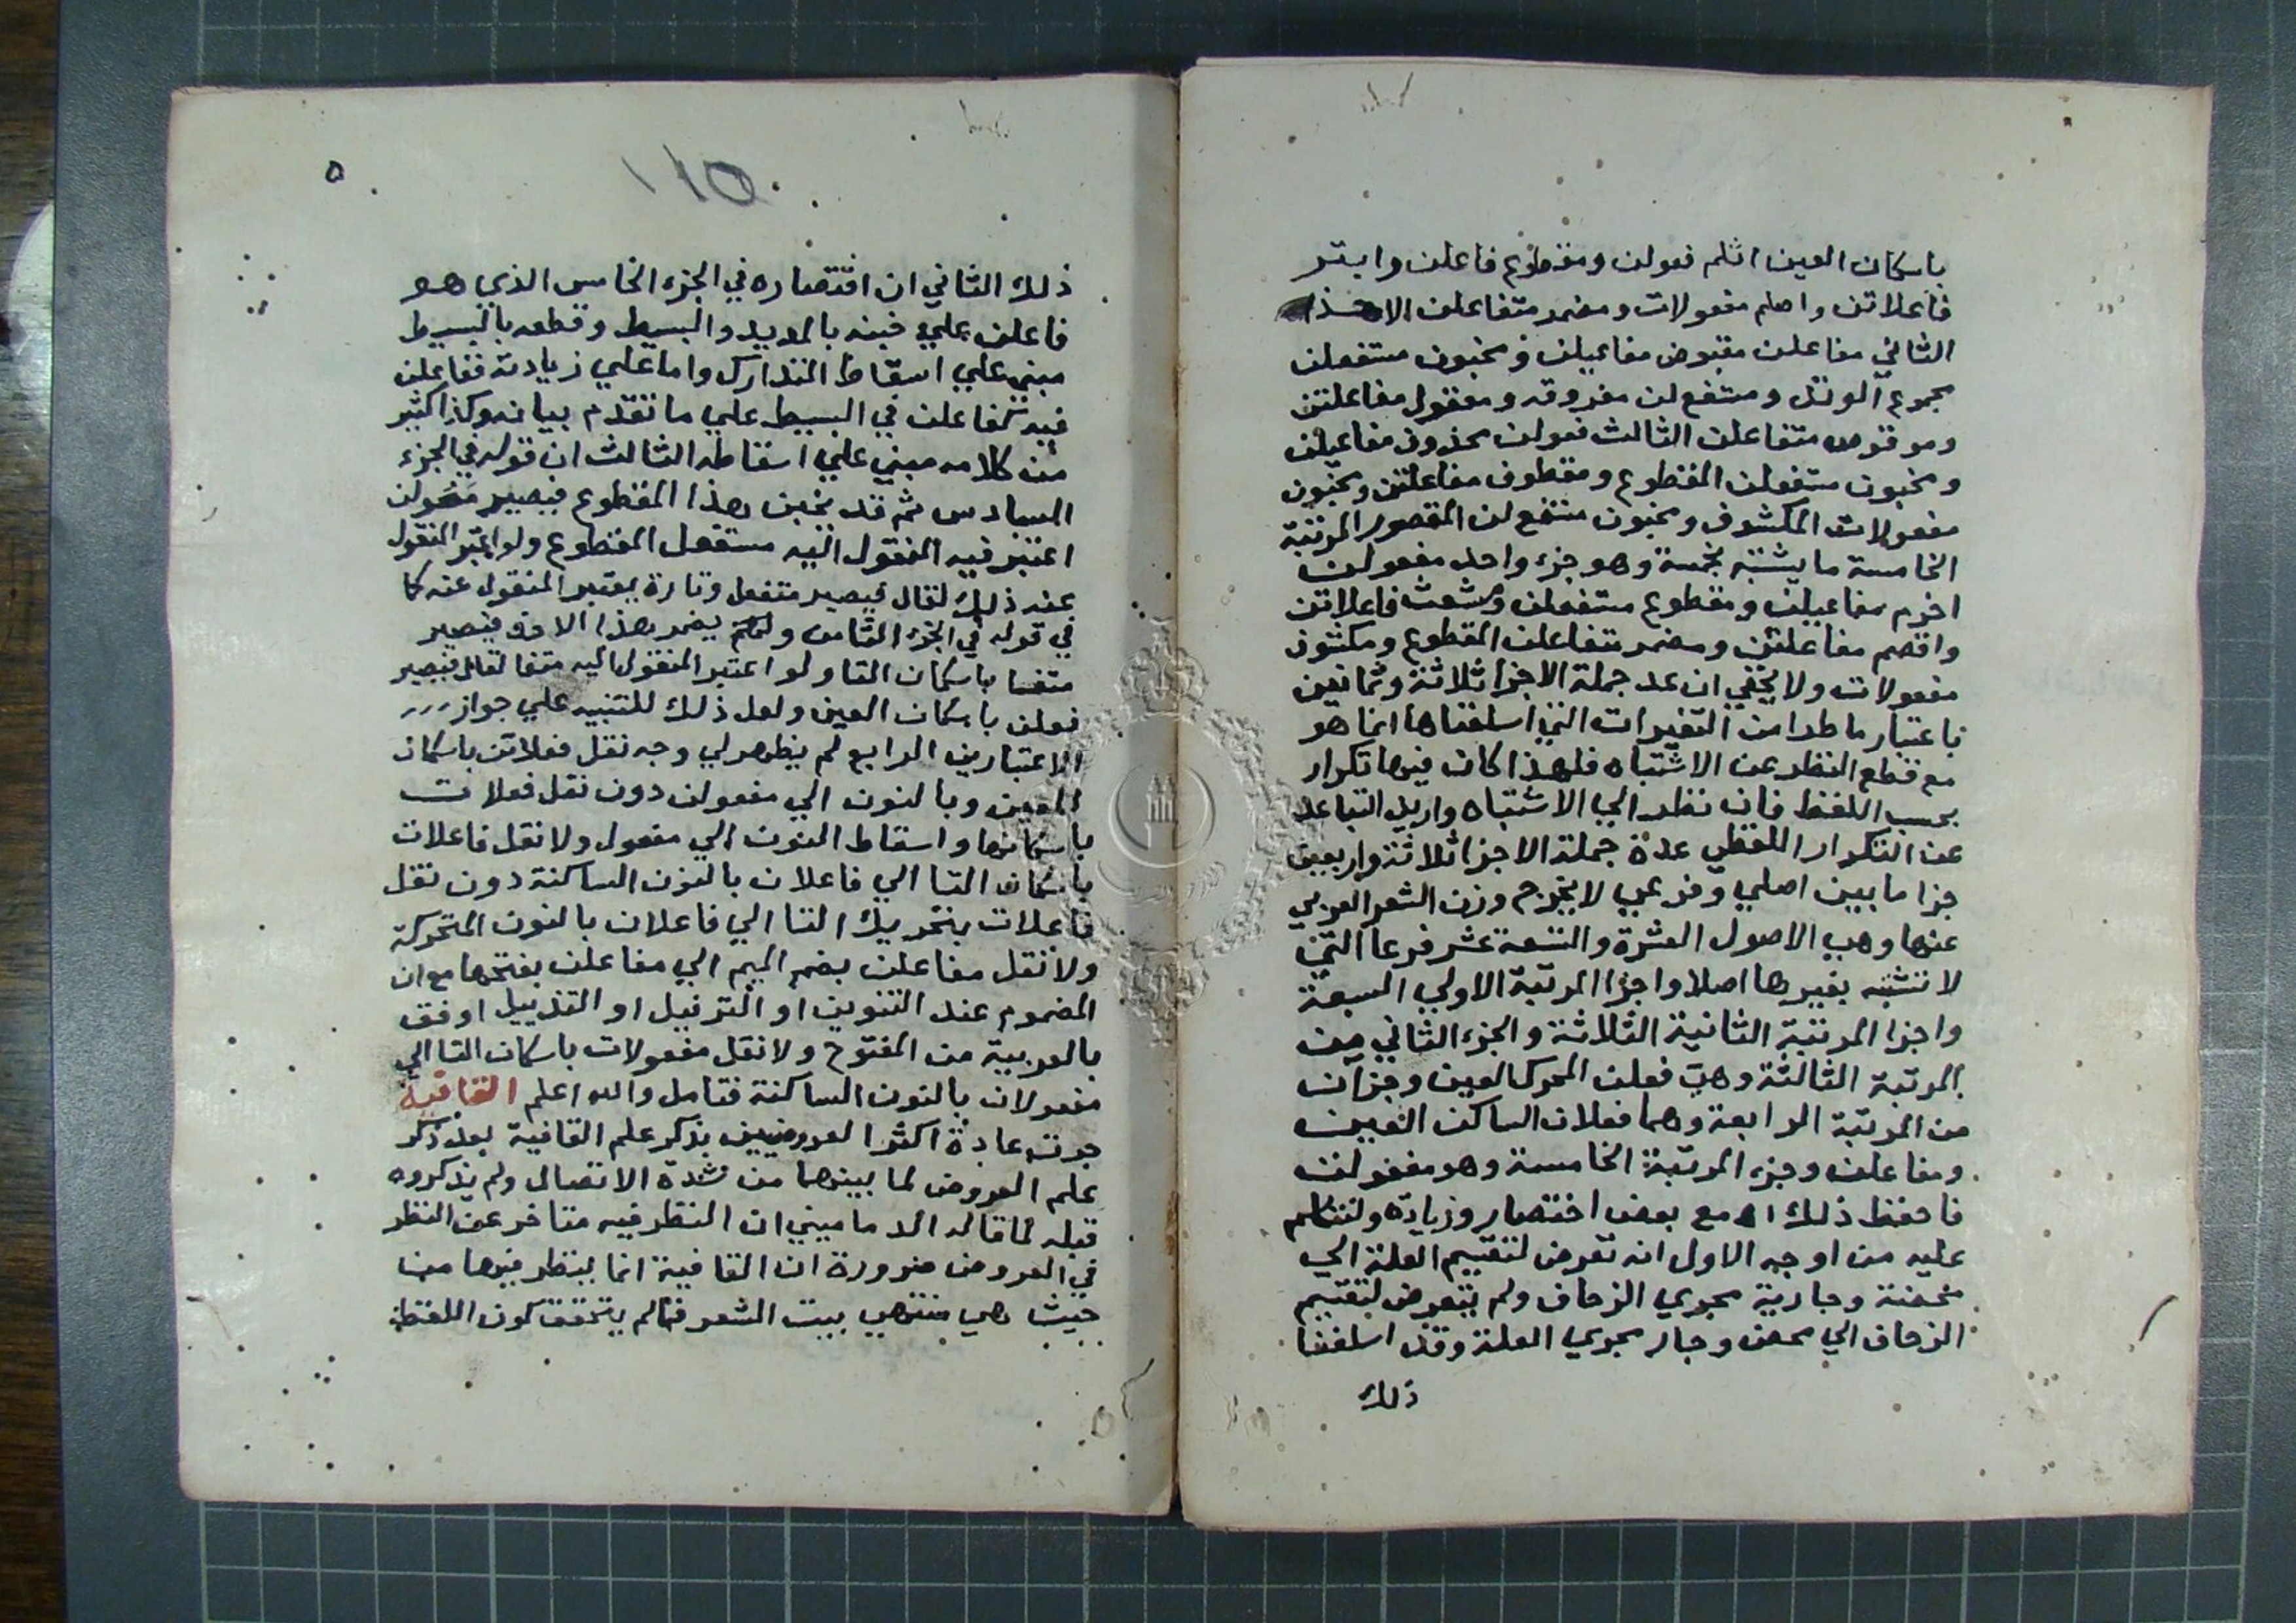 باسكان العين اثلم فعولن ومقطوع فاعلن وابتر
فاعلاتن واصلم مفعولات ومضمر متفاعلن الاحذ
الثاني مفاعلن مقبوض مفاعيلن ومخبون مستفعلن
مجموع الوتد ومستفع لن مفروقه ومعقول مفاعلتن
وموقوص متفاعلن الثالث فعولن محذوف مفاعيلن
ومخبون مستفعلن المقطوع ومقطوف مفاعلتن ومخبون
مفعولات المكشوف ومخبون مستفع لن المقصور المرتبة
الخامسة ما يشتبه بخمسة وهو جزء واحد مفعولن
اخرم مفاعيلن ومقطوع مستفعلن ومشعث فاعلاتن
واقصم مفاعلتن ومضمر متفاعلن المقطوع ومكشوف
مفعولات ولا يخفي ان عد جملة الاجزا ثلاثة وثمانين
باعتبار ما طرا من التغيرات التي اسلفناها انما هو
مع قطع النظر عن الاشتباه فلهذا كان فيها تكرار
بحسب اللفظ فان نظر الي الاشتباه واريد التباعد
عن التكرار اللفظي عدة جملة الاجزا ثلاثة واربعين
جزا ما بين اصلي وفرعي لا يخرج وزن الشعر العربي
عنها وهي الاصول العشرة والتسعة عشر فرعا التي
لا تشتبه بغيرها اصلا واجزا المرتبة الاولي السبعة
واجزا المرتبة الثانية الثلاثة والجزء الثاني من
المرتبة الثالثة وهي فعلن المحرك العين وجزآن
من المرتبة الرابعة وهما فعلان الساكن العين
ومفاعلن وجزء المرتبة الخامسة وهو مفعولن
فاحفظ ذلك اه مع بعض اختصار وزيادة ولنتكلم
عليه من اوجه الاول انه تعرض لتقسيم العلة الي
محضة وجارية مجري الزحاف ولم يتعرض لتقسيم
الزحاف الي محض وجار مجري العلة وقد اسلفنا
ذلك
١١٥
٥
ذلك الثاني ان اقتصاره في الجزء الخامس الذي هو
فاعلن علي خبنه بالمديد والبسيط وقطعه بالبسيط
مبني علي اسقاط المتدارك واما علي زيادته ففاعلن
فيه كفاعلن في البسيط علي ما تقدم بيانه وكذا كثير
من كلامه مبني علي اسقاطه الثالث ان قوله في الجزء
السادس ثم قد يخبن هذا المقطوع فيصير فعولن
اعتبر فيه المنقول اليه مستفعل المقطوع ولو اعتبر المنقول
عنه ذلك لقال فيصير متفعل وتارة يعتبر المنقول عنه كما
في قوله في الجزء الثامن ولكم يضمر هذا الاحذ فيصير
متفا باسكان التا ولو اعتبر المنقول اليه متفا لقال فيصير
فعلن باسكان العين ولعل ذلك للتنبيه علي جواز
الاعتبارين الرابع لم يظهر لي وجه نقل فعلاتن باسكان
العين وبالنون الي مفعولن دون نقل فعلات
باسكانها واسقاط النون الي مفعول ولا نقل فاعلات
باسكان التا الي فاعلان بالنون الساكنة دون نقل
فاعلات بتحريك التا الي فاعلان بالنون المتحركة
ولا نقل مفاعلن بضم الميم الي مفاعلن بفتحها مع ان
المضموم عند التنوين او الترفيل او التذييل اوفق
بالعربية من المفتوح ولا نقل مفعولات باسكان التا الي
مفعولان بالنون الساكنة فتامل والله اعلم القافية
جرت عادة اكثر العروضيين بذكر علم القافية بعد ذكر
علم العروض لما بينهما من شدة الاتصال ولم يذكروه
قبله لما قاله الدماميني ان النظر فيه متاخر عن النظر
في العروض ضرورة ان القافية انما ينظر فيها من
حيث هي منتهي بيت الشعر فما لم يتحقق كون اللفظ